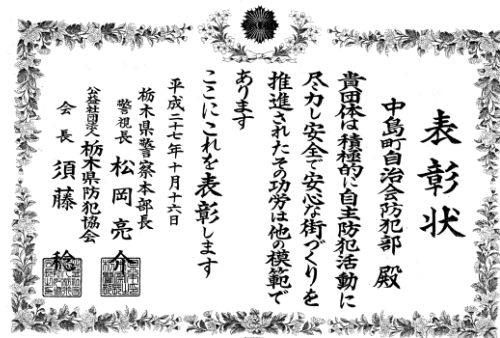 表彰状
中島町自治会防犯部 殿
貴団体は積極的に自主防犯活動に
尽力し安全で安心な街づくりを
推進されたその功労は他の模範で
あります
ここにこれを表彰します
平成二十七年十月十六日
栃木県警察本部長
警視長 松岡亮介
公益社団法人 栃木県防犯協会
会長 須藤 稔